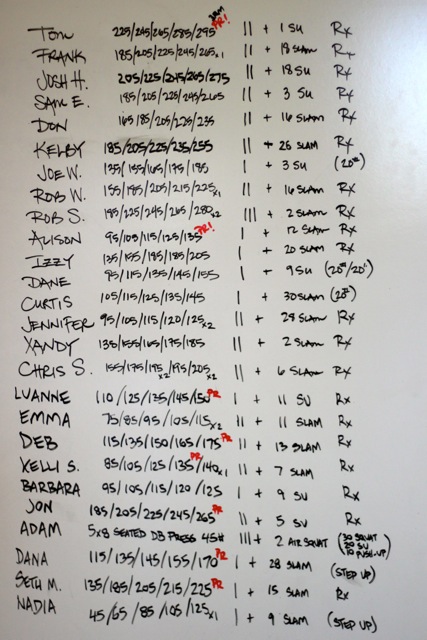 TOM 225/245/265/285/295 PR! || + 1 SU Rx
FRANK 185/205/225/245/265x1 || + 18 SLAM Rx
JOSH H. 205/225/245/265/275 || + 18 SU Rx
SAM E. 185/205/225/245/265 || + 3 SU Rx
DON 165/185/205/225/235 || + 16 SLAM Rx
KELBY 185/205/225/235/255 || + 26 SLAM Rx
JOE W. 135/155/165/175/185 | + 3 SU (20")
ROB W. 155/185/205/215/225x1 || + 16 SLAM Rx
ROB S. 185/225/245/265/280x2 ||| + 2 SLAM Rx
ALISON 95/105/115/125/135 PR! | + 12 SLAM Rx
IZZY 135/155/185/185/205 | + 20 SLAM Rx
DANE 95/115/135/145/155 | + 9 SU (20#/20")
CURTIS 105/115/125/135/145 | + 30 SLAM (20")
JENNIFER 95/105/115/120/125x2 || + 28 SLAM Rx
XANDY 135/155/165/175/185 || + 2 SLAM Rx
CHRIS S. 155/175/195x2/195/205x2 || + 6 SLAM Rx
LUANNE 110/125/135/145/150 PR | + 11 SU Rx
EMMA 75/85/95/105/115x2 || + 11 SLAM Rx
DEB 115/135/150/165/175 PR || + 13 SLAM Rx
KELLI S. 85/105/125/135 PR/140x1 || + 7 SLAM Rx
BARBARA 95/105/115/120/125 | + 9 SU Rx
JON 185/205/225/245/265 PR || + 5 SU Rx
ADAM 5x8 SEATED DB PRESS 45# |||+ 2 AIR SQUAT (30 SQUAT 20 SU 10 PUSH-UP)
DANA 115/135/145/155/170 PR | + 28 SLAM (STEP UP)
SETH M. 135/185/205/215/225 PR | + 15 SLAM Rx
NADIA 45/65/85/105/125x1 | + 9 SLAM (STEP UP)